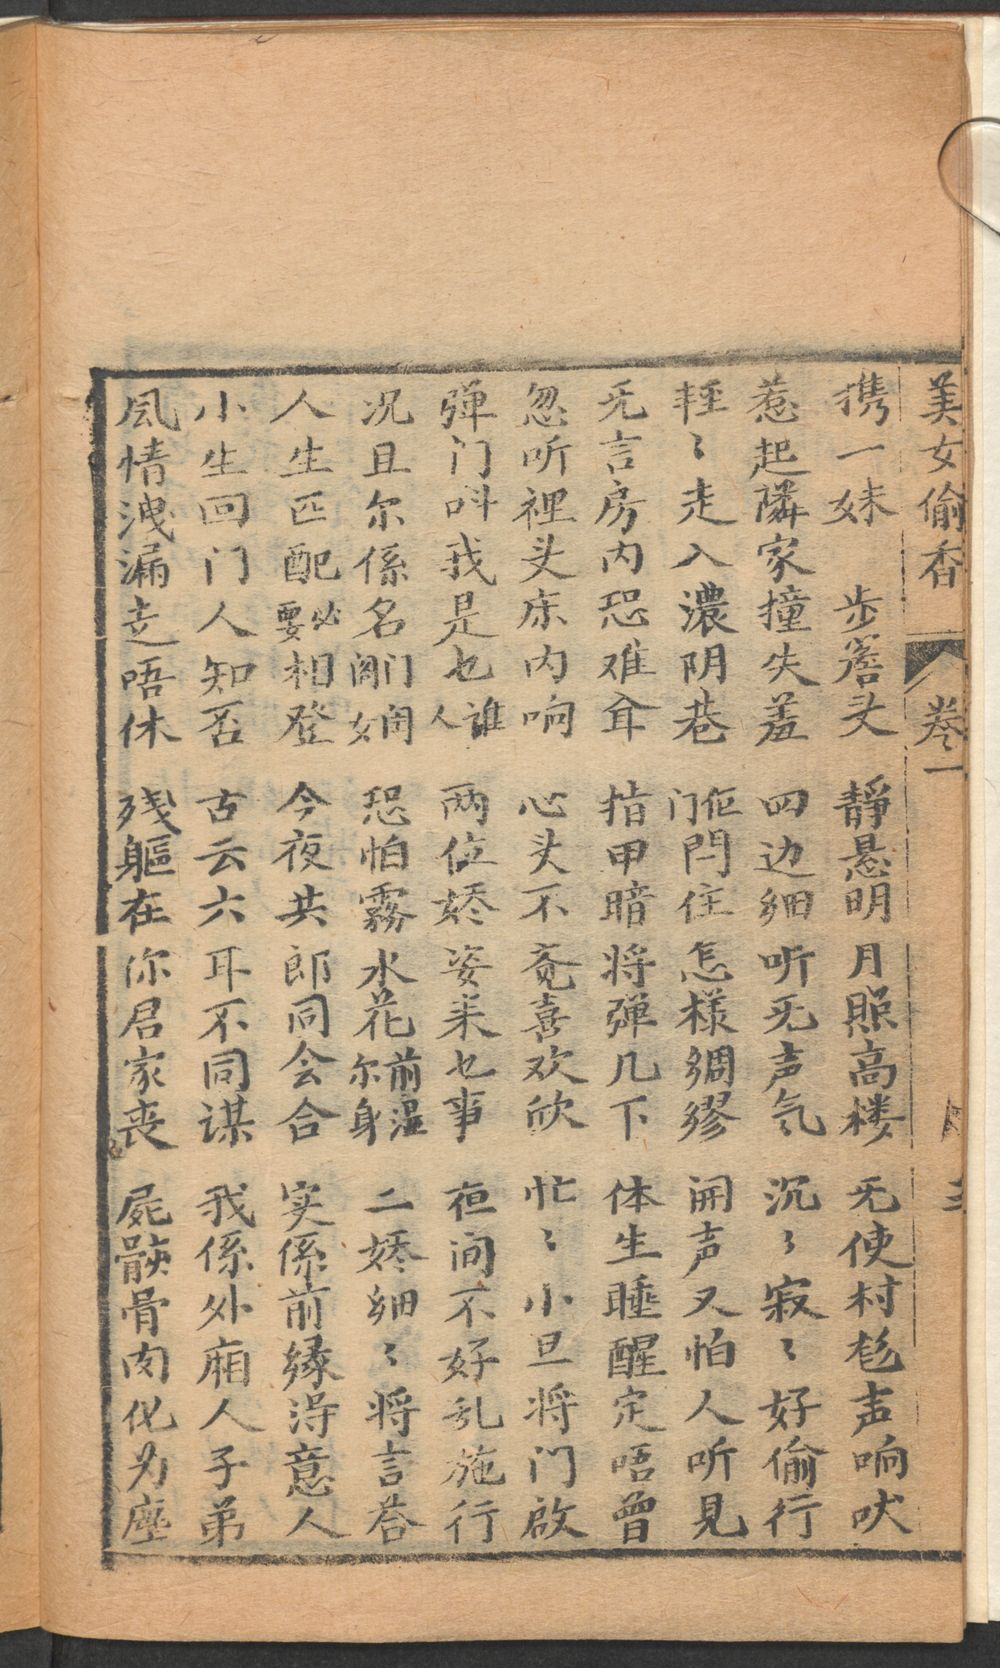 美女偷香 卷一
携一妹 步簷头 静悬明月照高楼 无使村尨声响吠
惹起隣家撞失羞 四边细听无声气 沉〻寂〻好偷行
轻〻走入濃阴巷 门佢閂住怎様绸缪 開声又怕人听见
无言房内恐难耸 指甲暗将弹几下 体生睡醒定唔曾
忽听裡头床内响 心头不觉喜欢欣 忙〻小旦将门啟
弹门呌我是乜谁人 两位娇姿来乜事 夜间不好乱施行
况且尔係名门閨女 恐怕霧水花前湿尔身 二娇细〻将言荅
人生匹配必要相登 今夜共郎同会合 实係前缘得意人
小生回门人知否 古云六耳不同谋 我係外廂人子弟
风情洩漏走唔休 残軀在你启家丧 屍骸骨肉化为塵